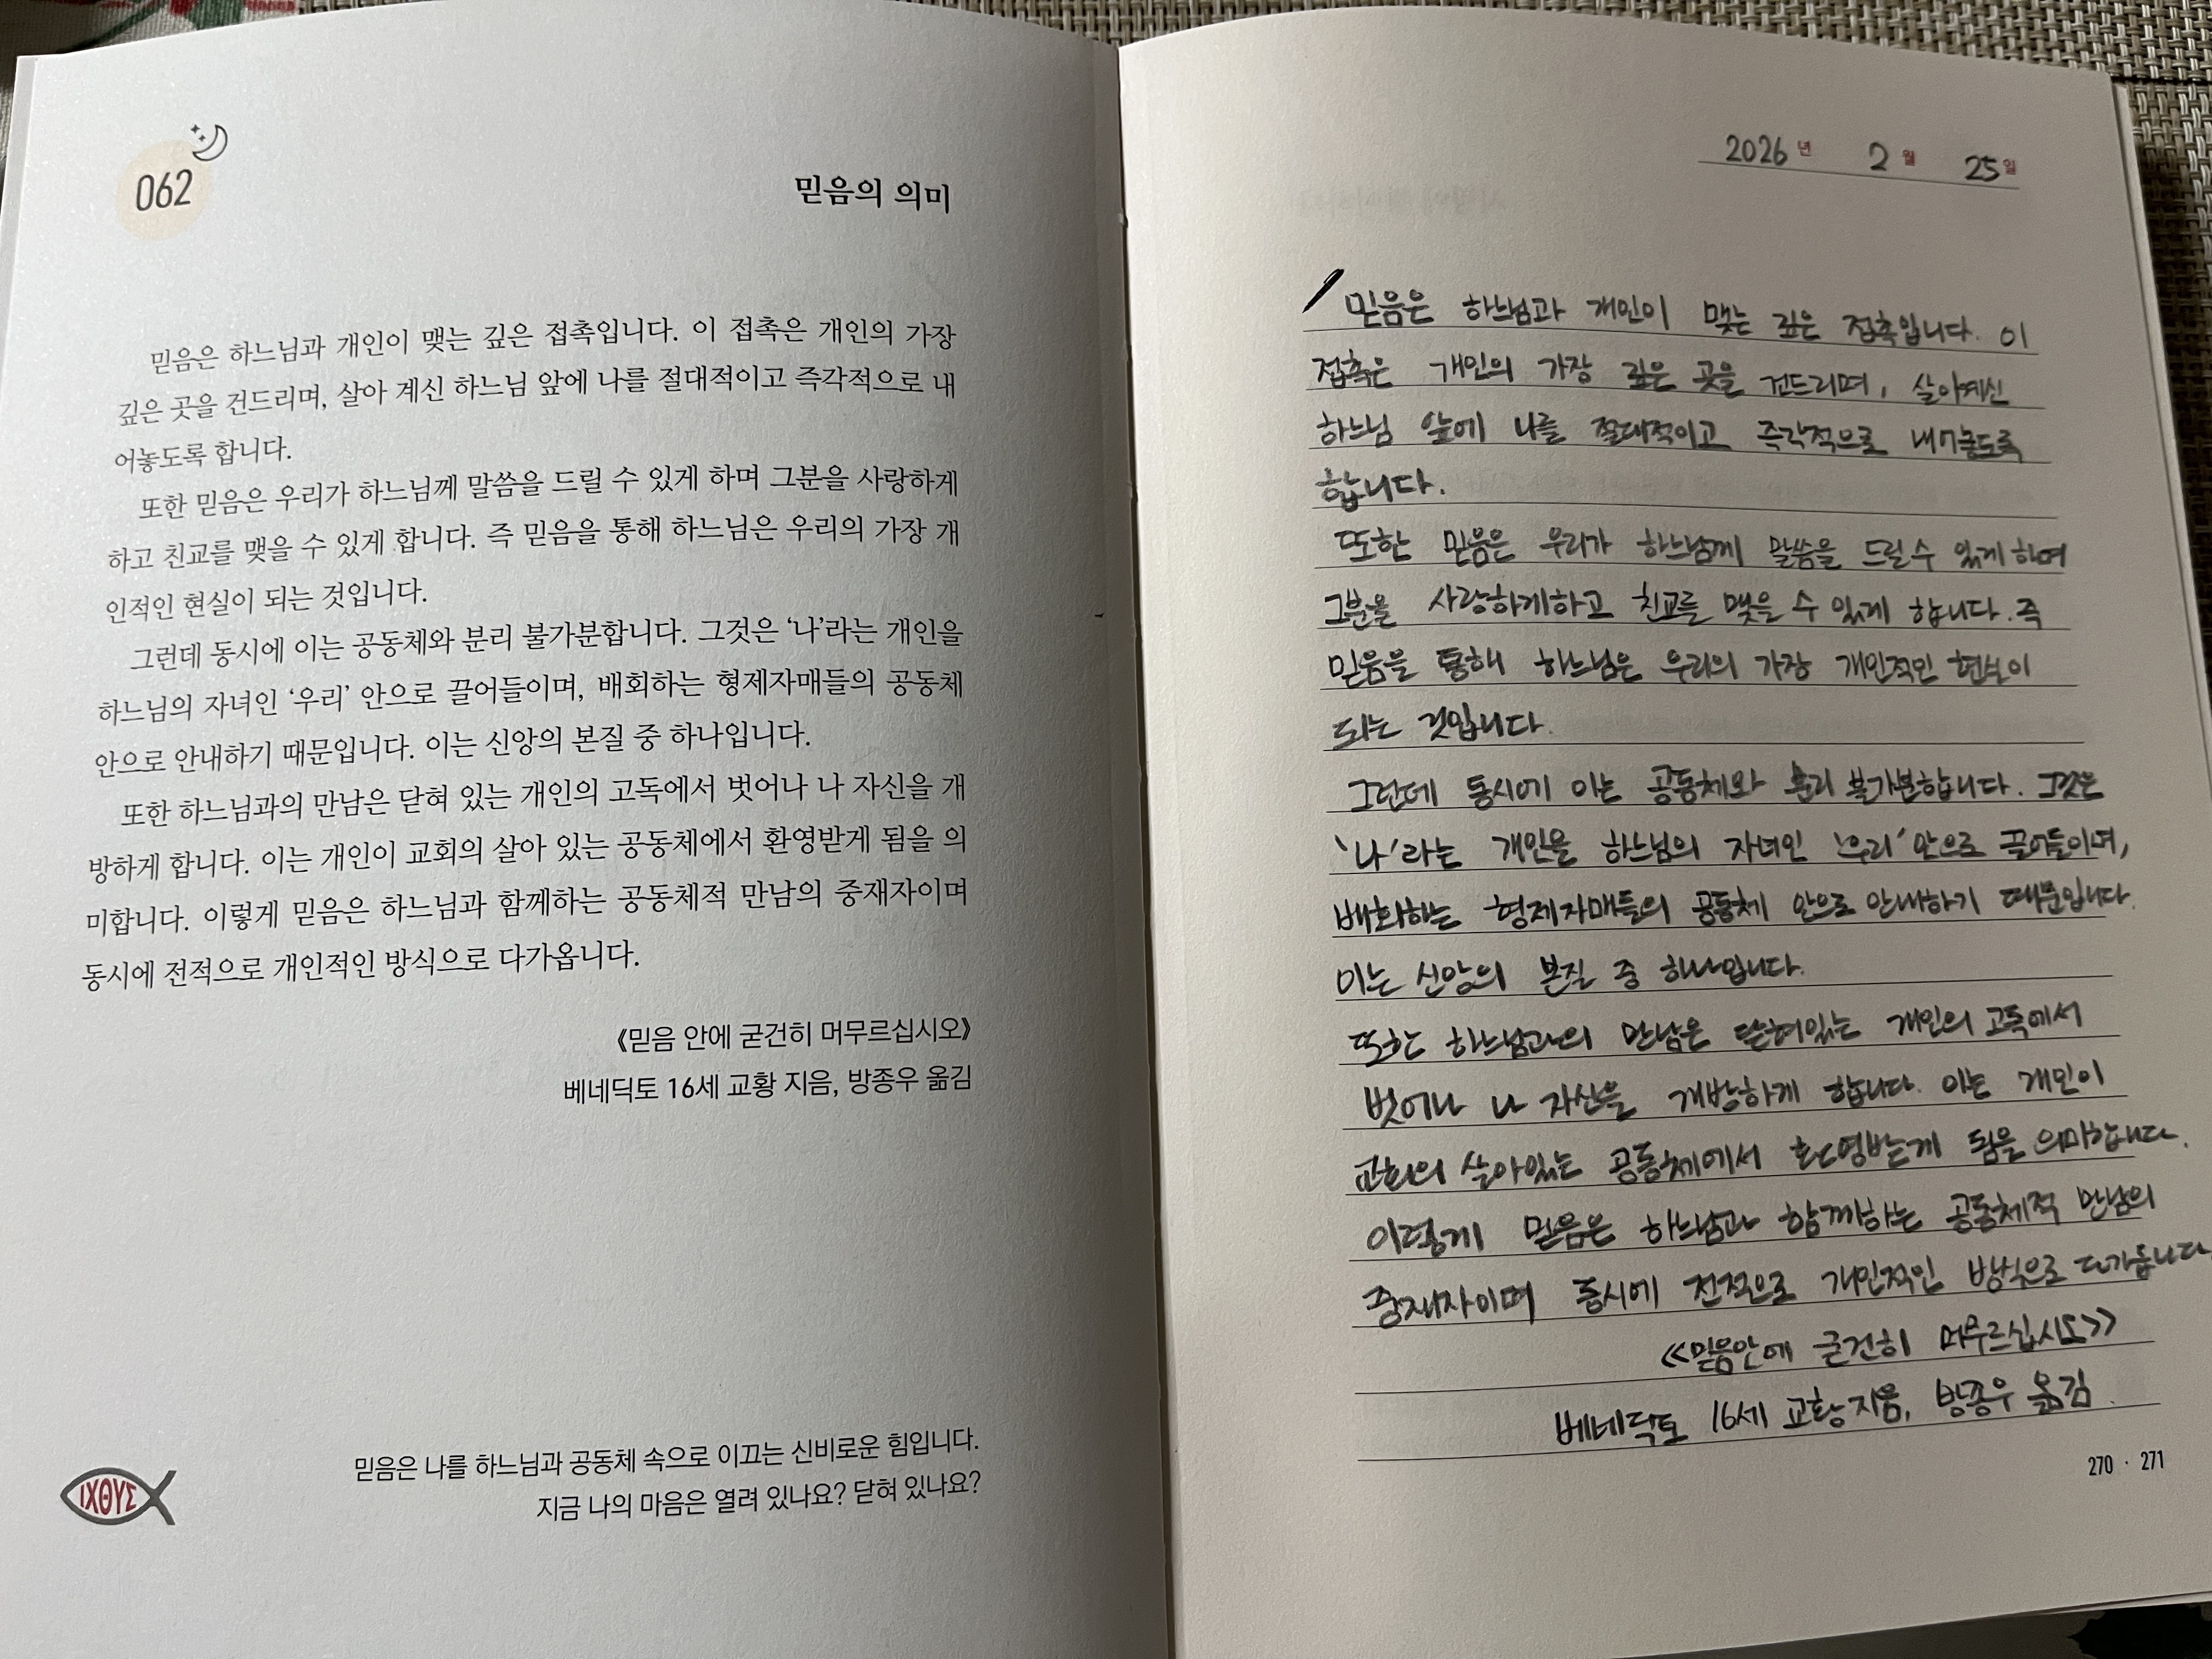 062
믿음의 의미
믿음은 하느님과 개인이 맺는 깊은 접촉입니다. 이 접촉은 개인의 가장
깊은 곳을 건드리며, 살아 계신 하느님 앞에 나를 절대적이고 즉각적으로 내
어놓도록 합니다.
또한 믿음은 우리가 하느님께 말씀을 드릴 수 있게 하며 그분을 사랑하게
하고 친교를 맺을 수 있게 합니다. 즉 믿음을 통해 하느님은 우리의 가장 개
인적인 현실이 되는 것입니다.
그런데 동시에 이는 공동체와 분리 불가분합니다. 그것은 ‘나’라는 개인을
하느님의 자녀인 ‘우리’ 안으로 끌어들이며, 배회하는 형제자매들의 공동체
안으로 안내하기 때문입니다. 이는 신앙의 본질 중 하나입니다.
또한 하느님과의 만남은 닫혀 있는 개인의 고독에서 벗어나 나 자신을 개
방하게 합니다. 이는 개인이 교회의 살아 있는 공동체에서 환영받게 됨을 의
미합니다. 이렇게 믿음은 하느님과 함께하는 공동체적 만남의 중재자이며
동시에 전적으로 개인적인 방식으로 다가옵니다.
《믿음 안에 굳건히 머무르십시오》
베네딕토 16세 교황 지음, 방종우 옮김
믿음은 나를 하느님과 공동체 속으로 이끄는 신비로운 힘입니다.
지금 나의 마음은 열려 있나요? 닫혀 있나요?
ΙΧΘΥΣ
2026년 2월 25일
믿음은 하느님과 개인이 맺는 깊은 접촉입니다. 이
접촉은 개인의 가장 깊은 곳을 건드리며, 살아계신
하느님 앞에 나를 절대적이고 즉각적으로 내어놓도록
합니다.
또한 믿음은 우리가 하느님께 말씀을 드릴 수 있게 하며
그분을 사랑하게하고 친교를 맺을 수 있게 합니다. 즉
믿음을 통해 하느님은 우리의 가장 개인적인 현실이
되는 것입니다.
그런데 동시에 이는 공동체와 분리 불가분합니다. 그것은
‘나’라는 개인을 하느님의 자녀인 ‘우리’ 안으로 끌어들이며,
배회하는 형제자매들의 공동체 안으로 안내하기 때문입니다.
이는 신앙의 본질 중 하나입니다.
또한 하느님과의 만남은 닫혀있는 개인의 고독에서
벗어나 나 자신을 개방하게 합니다. 이는 개인이
교회의 살아있는 공동체에서 환영받게 됨을 의미합니다.
이렇게 믿음은 하느님과 함께하는 공동체적 만남의
중재자이며 동시에 전적으로 개인적인 방식으로 다가옵니다
<<믿음안에 굳건히 머무르십시오>>
베네딕토 16세 교황 지음, 방종우 옮김.
270 · 271